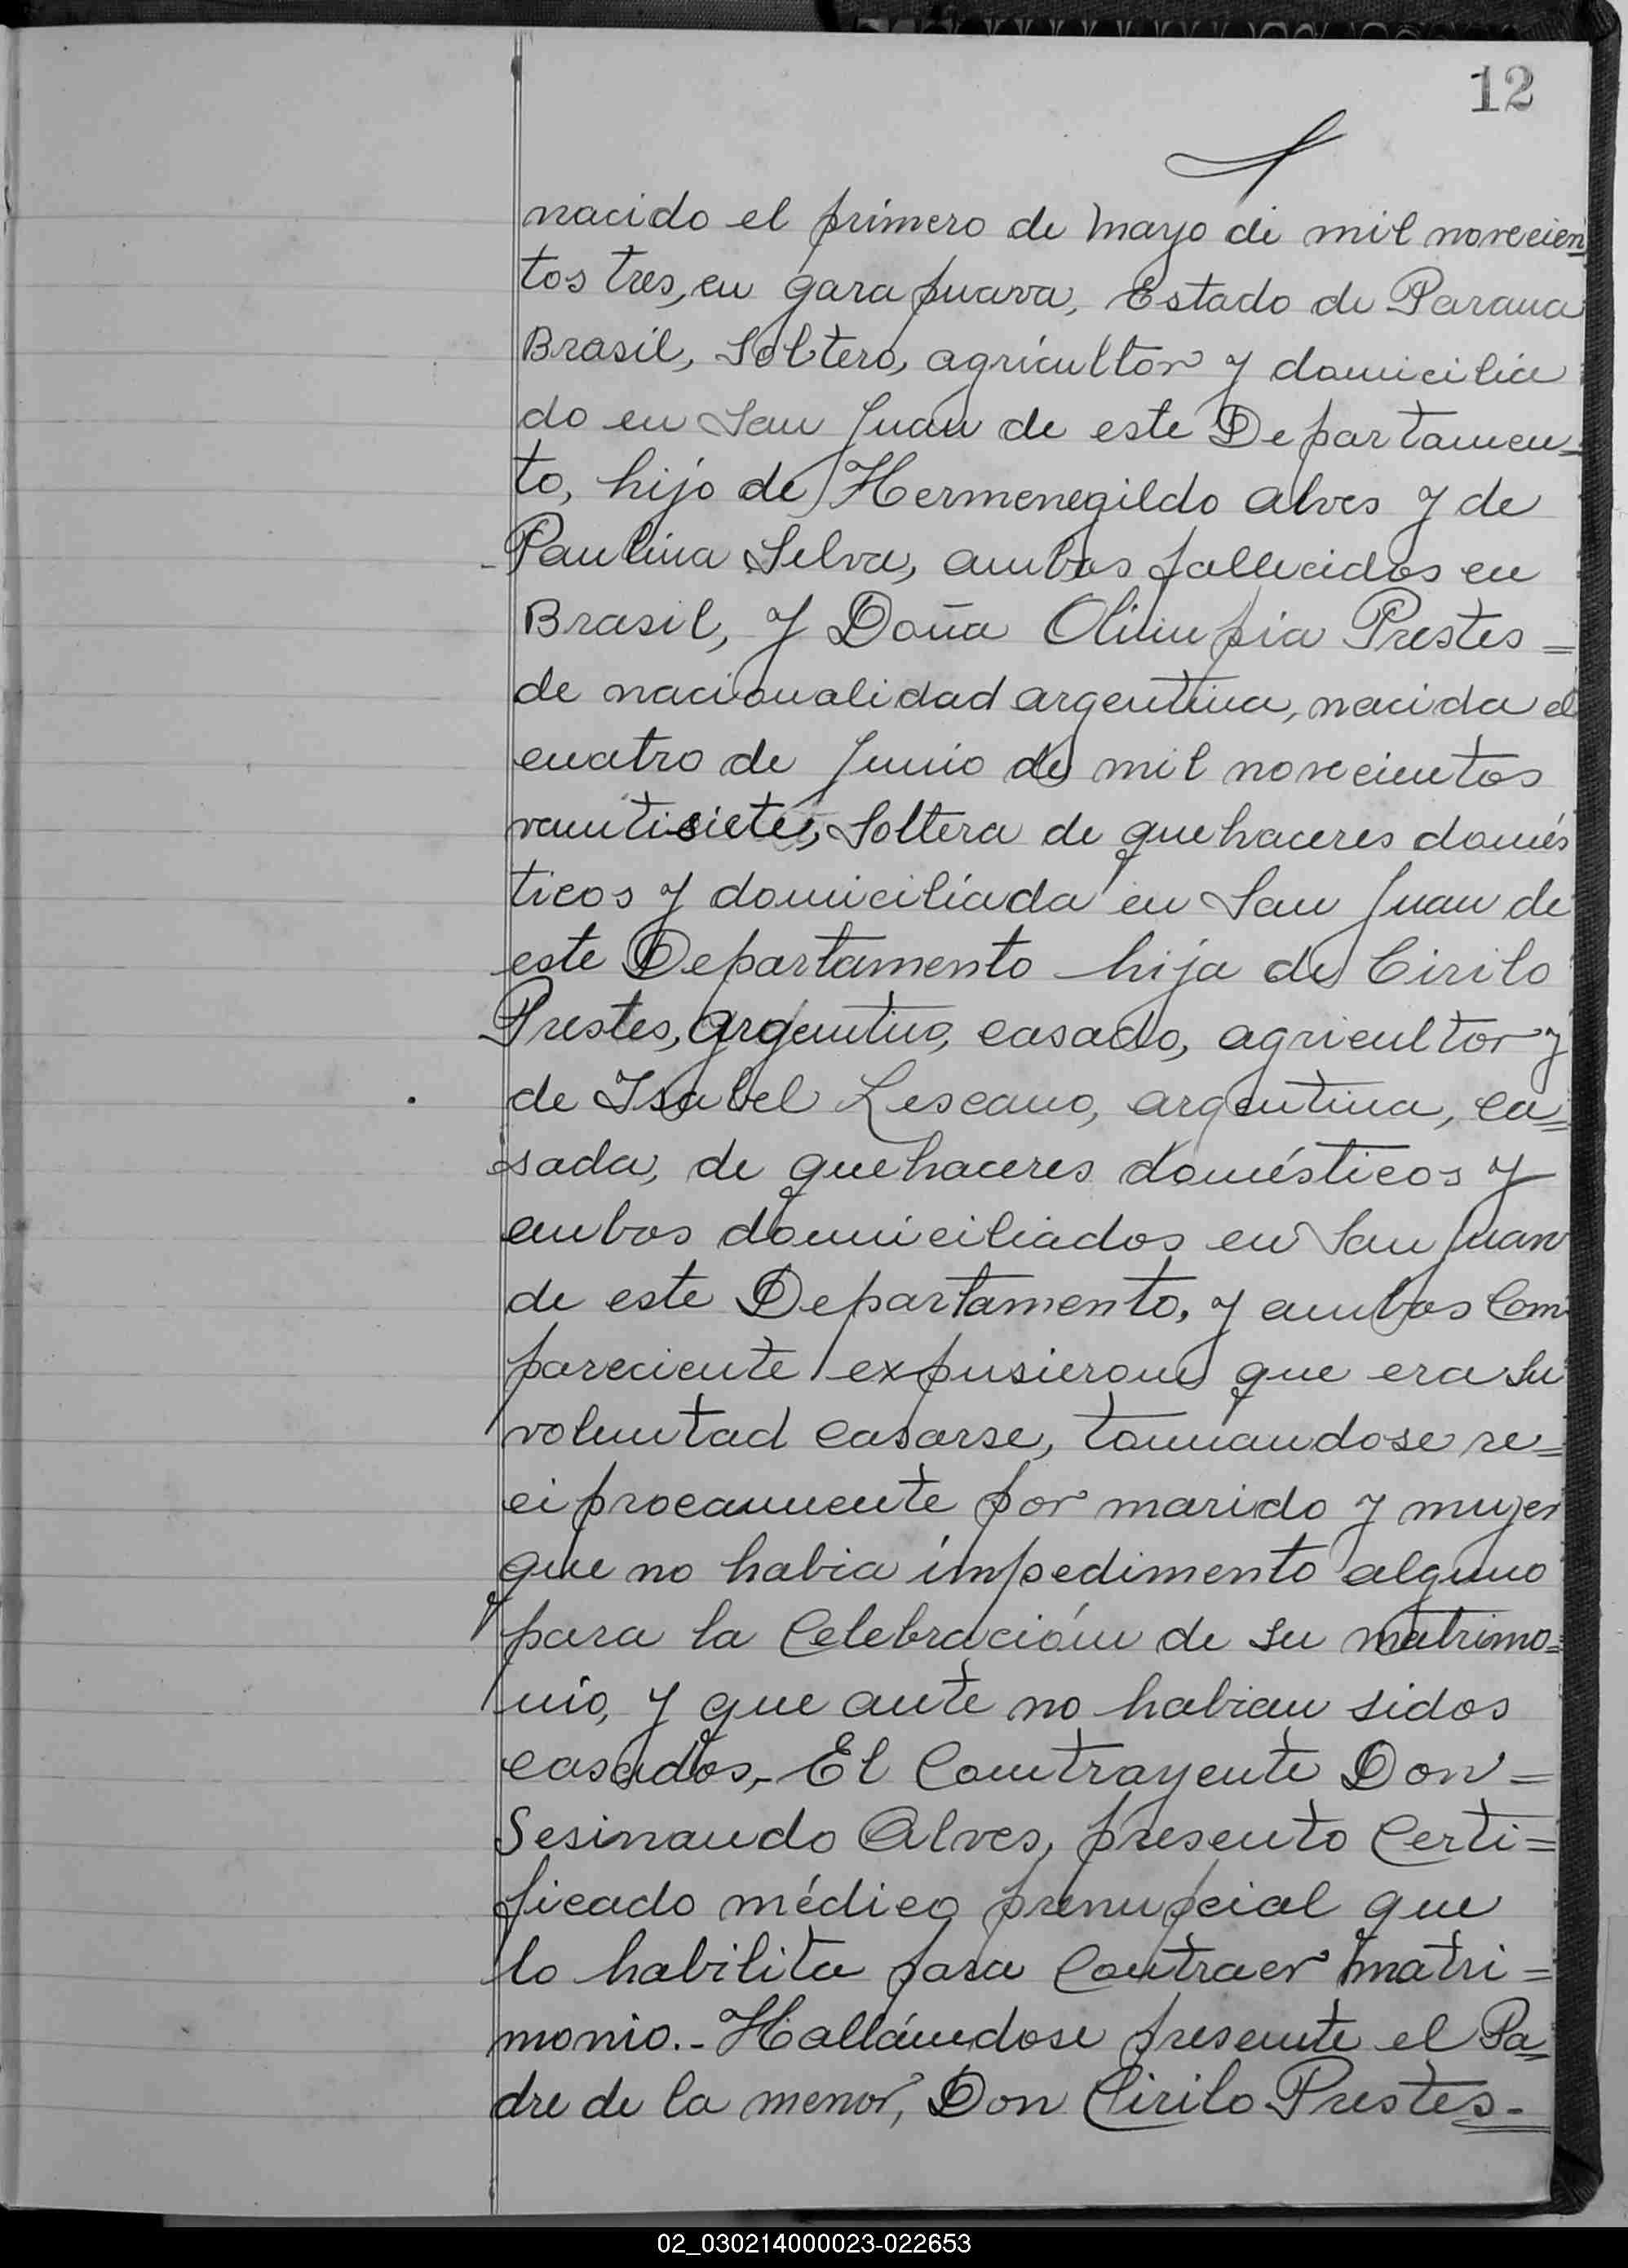 12
nacido el primero de Mayo de mil novecien
tos tres, en garapuava, Estado de Parana
Brasil, Soltero, agricultor y domicilia
do en San Juan de este Departamen=
to, hijo de Hermenegildo Alves y de
Paulina Selva, ambos fallecidos en
Brasil, y Doña Olimpia Prestes =
de nacionalidad argentina, nacida el
cuatro de Junio de mil novecientos
veintisiete, Soltera de quehaceres domés
ticos y domiciliada en San Juan de
este Departamento hija de Cirilo
Prestes, argentino, casado, agricultor y
de Isabel Lescano, argentina, ca=
sada, de quehaceres domésticos y
ambos domiciliados en San Juan
de este Departamento, y ambos Com
pareciente expusieron que era su
voluntad casarse, tomandose re=
ciprocamente por marido y mujer
que no habia impedimento alguno
para la Celebración de su matrimo=
nio, y que ante no habian sidos
casados,- El Contrayente Don =
Sesinando Alves, presento Certi=
ficado médico prenupcial que
lo habilita para Contraer matri=
monio.- Hallándose presente el Pa=
dre de la menor, Don Cirilo Prestes.=
02_030214000023-022653